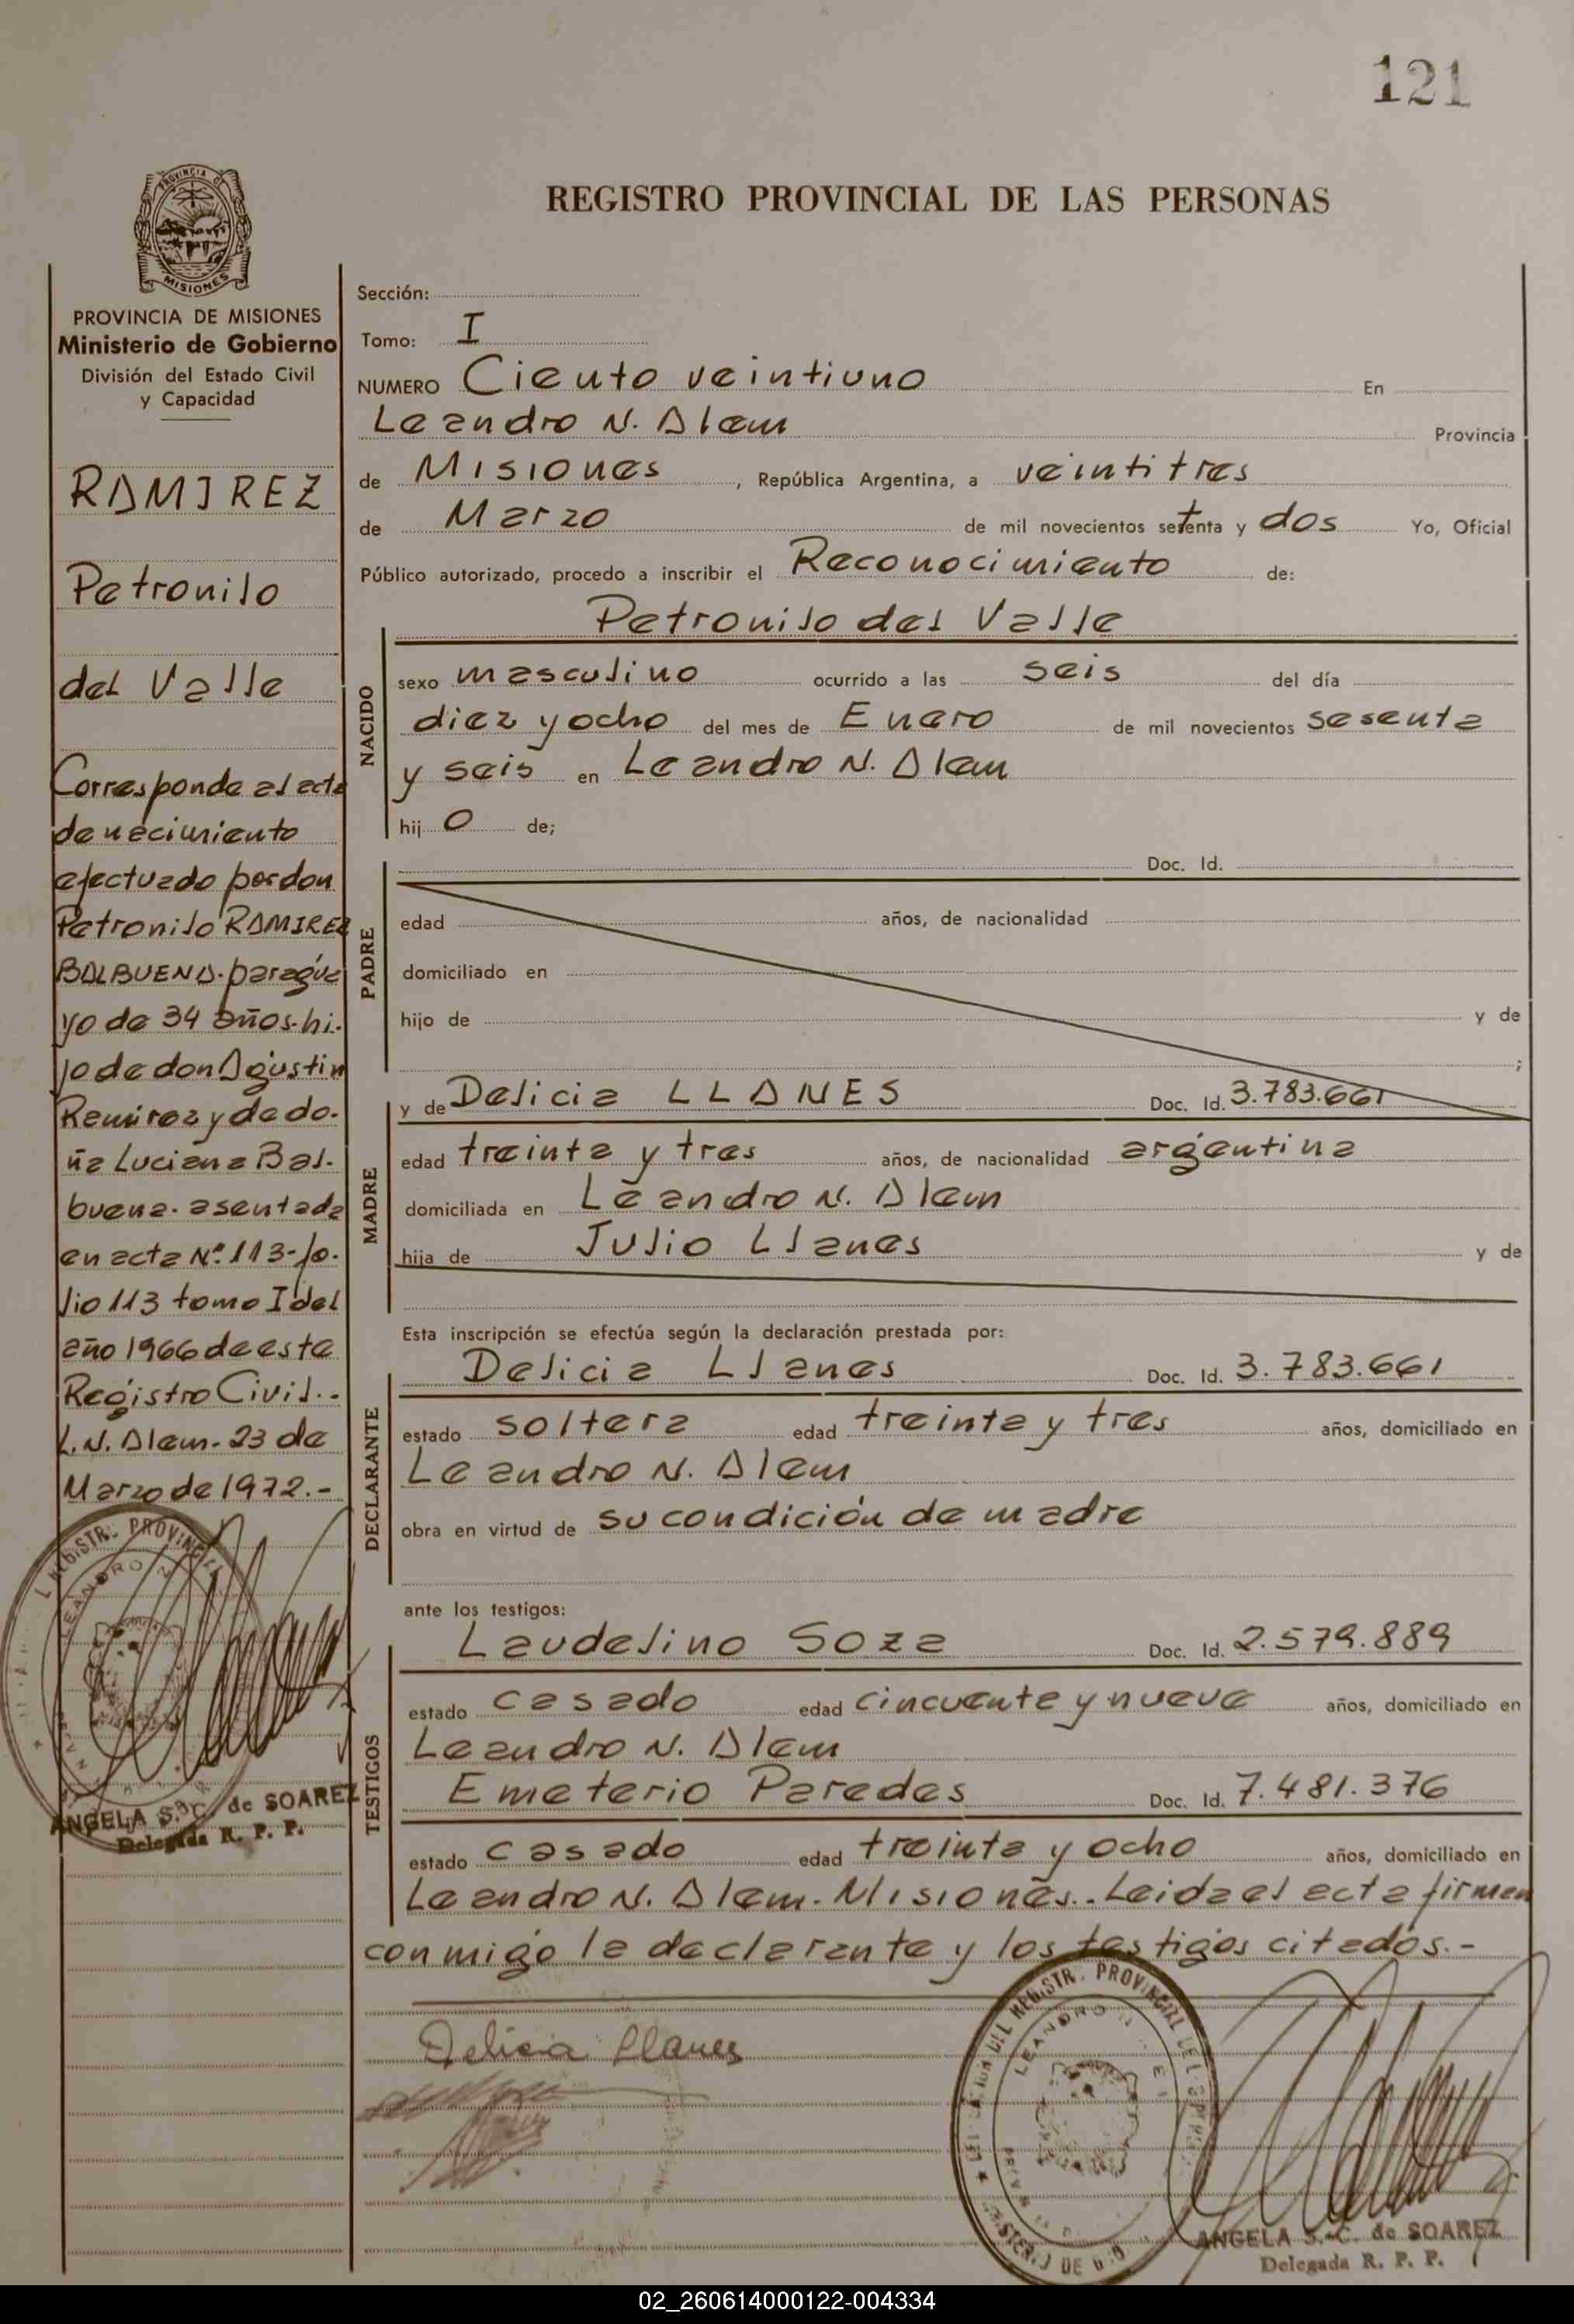 121
REGISTRO PROVINCIAL DE LAS PERSONAS
PROVINCIA DE
MISIONES
PROVINCIA DE MISIONES
Ministerio de Gobierno
División del Estado Civil
y Capacidad
RAMIREZ
Petronilo
del Valle
Corresponde al acta
de nacimiento
efectuado por don
Petronilo RAMIREZ
BALBUENA. paragua
yo de 34 años-hi-
jo de don Agustin
Ramirez y de do-
ña Luciana Bal-
buena. asentada
en acta Nº 113-fo-
lio 113 tomo I del
año 1966 de este
Registro Civil..
L.N. Alem-23 de
Marzo de 1972.-
ANGELA S. C. de SOAREZ
Delegada R. P. P.
Sección:
Tomo: I
NUMERO Ciento veintiuno En
Leandro N. Alem Provincia
de Misiones, República Argentina, a veintitres
de Marzo de mil novecientos setenta y dos Yo, Oficial
Público autorizado, procedo a inscribir el Reconocimiento de:
NACIDO
Petronilo del Valle
sexo masculino ocurrido a las seis del día
diez y ocho del mes de Enero de mil novecientos sesenta
y seis en Leandro N. Alem
hijo de;
PADRE
Doc. Id.
edad años, de nacionalidad
domiciliado en
hijo de y de
;
MADRE
y de Delicia LLANES Doc. Id. 3.783.661
edad treinta y tres años, de nacionalidad argentina
domiciliada en Leandro N. Alem
hija de Julio Llanes y de
Esta inscripción se efectúa según la declaración prestada por:
DECLARANTE
Delicia Llanes Doc. Id. 3.783.661
estado soltera edad treinta y tres años, domiciliado en
Leandro N. Alem
obra en virtud de su condición de madre
ante los testigos:
TESTIGOS
Laudelino Soza Doc. Id. 2.579.889
estado casado edad cincuenta y nueve años, domiciliado en
Leandro N. Alem
Emeterio Paredes Doc. Id. 7.481.376
estado casado edad treinta y ocho años, domiciliado en
Leandro N. Alem-Misiones.. Leida el acta firman
conmigo la declarante y los testigos citados.-
Delicia Llanes
ANGELA S. C. de SOAREZ
Delegada R. P. P.
02_260614000122-004334